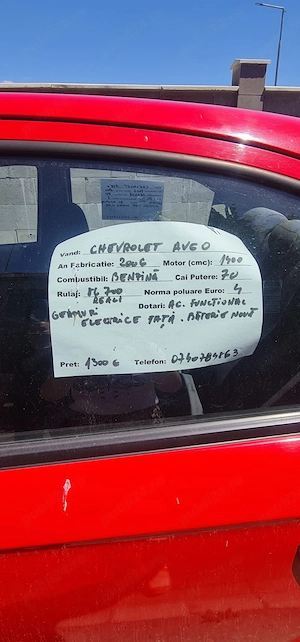 Vand: CHEVROLET AVEO
An Fabricatie: 2006 Motor (cmc): 1400
Combustibil: BENZINĂ Cai Putere: 70
Rulaj: Norma poluare Euro: 4
REALI Dotari: AC. FUNCTIONAL
GEAMURI
ELECTRICE FAȚĂ. BATERIE NOUĂ
Pret: 1300 € Telefon: